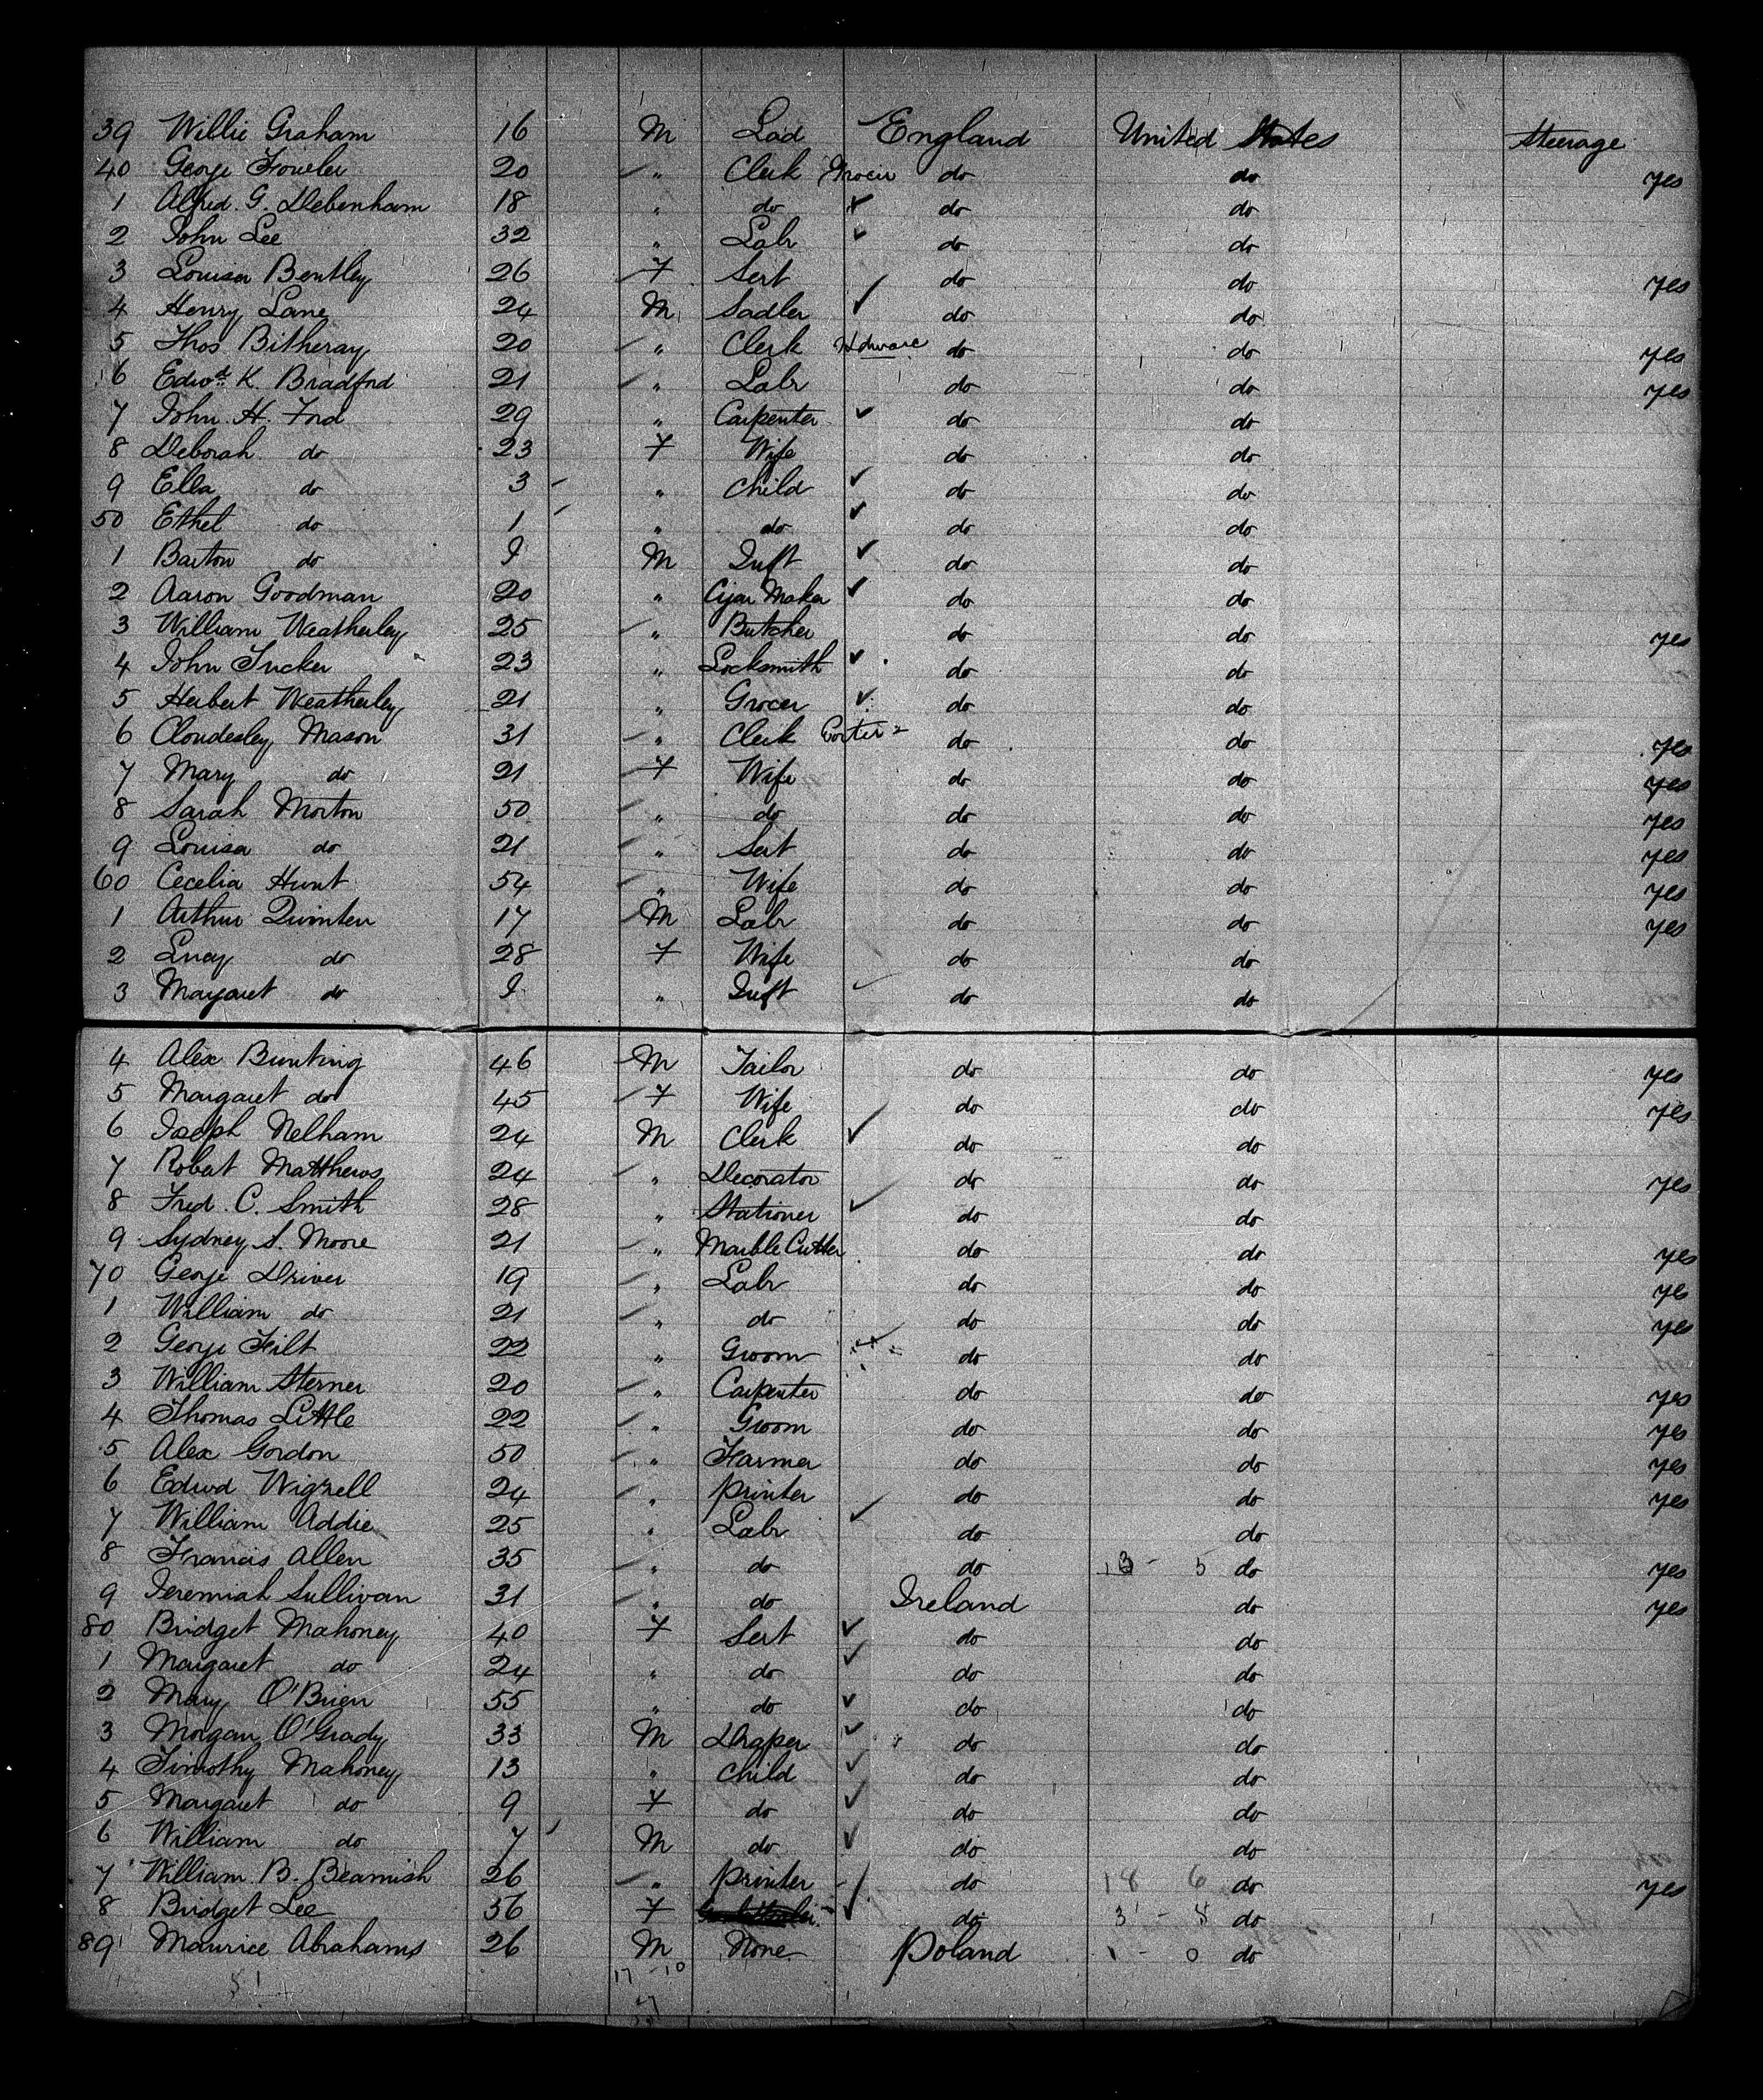 39 Willie Graham 16 M Lad England United States Steerage
40 George Fowler 20 " Clerk Grocer do do yes
1 Alfred. G. Debenham 18 " do do do
2 John Lee 32 " Labr do do
3 Louisa Bentley 26 F Sert do do yes
4 Henry Lane 24 M Sadler do do
5 Thos Bitheray 20 " Clerk Hdware do do yes
6 Edwd. K. Bradford 21 " Labr do do yes
7 John. H. Ford 29 " Carpenter do do
8 Deborah do 23 F Wife do do
9 Ella do 3 " Child do do
50 Ethel do 1 " do do do
1 Barton do I M Inft do do
2 Aaron Goodman 20 " Cigar Maker do do
3 William Weatherley 25 " Butcher do do yes
4 John Tucker 23 " Locksmith do do
5 Herbert Weatherley 21 " Grocer do do
6 Cloudesley Mason 31 " Clerk do do yes
7 Mary do 21 F Wife do do yes
8 Sarah Morton 50 " do do do yes
9 Louisa do 21 " Sert do do yes
60 Cecelia Hunt 54 " Wife do do yes
1 Arthur Quinten 17 M Labr do do yes
2 Lucy do 28 F Wife do do
3 Margaret do I " Inft do do
4 Alex Bunting 46 M Tailor do do yes
5 Margaret do 45 F Wife do do yes
6 Joseph Nelham 24 M Clerk do do
7 Robert Matthews 24 " Decorator do do yes
8 Fred. C. Smith 28 " Stationer do do
9 Sydney S. Moore 21 " Marble Cutter do do yes
70 George Driver 19 " Labr do do yes
1 William do 21 " do do do yes
2 George Filt 22 " Groom do do
3 William Sterner 20 " Carpenter do do yes
4 Thomas Little 22 " Groom do do yes
5 Alex Gordon 50 " Farmer do do yes
6 Edwd Wigzell 24 " Printer do do yes
7 William Addie 25 " Labr do do
8 Francis Allen 35 " do do 13 - 5 do yes
9 Jeremiah Sullivan 31 " do Ireland do yes
80 Bridget Mahoney 40 F Sert do do
1 Margaret do 24 " do do do
2 Mary O'Brien 55 " do do do
3 Morgan O'Grady 33 M Draper do do
4 Timothy Mahoney 13 " Child do do
5 Margaret do 9 F do do do
6 William do 7 M do do do
7 William. B. Beamish 26 " Printer do 18 6 do yes
8 Bridget Lee 36 F do 3 - 5 do
89 Maurice Abrahams 26 M None Poland 1 - 0 do
17 - 10